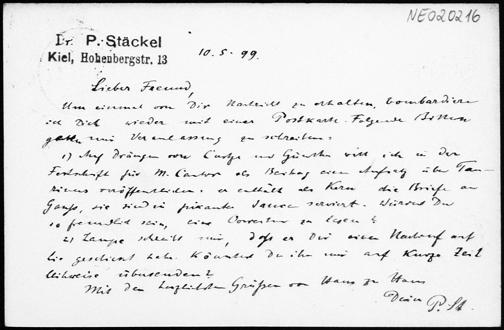 NE020216
Dr. P. Stäckel
Kiel, Hohenbergstr. 13
10.5.99.
Lieber Freund,
Um einmal von Dir Nachricht zu erhalten, bombardiere
ich Dich wieder mit einer Postkarte. Folgende Bitten
geben mir Veranlassung zu schreiben.
1) Auf Drängen von Curtze und Günther will ich in der
Festschrift für M. Cantor als Beitrag einen Aufsatz über Tau-
rinus veröffentlichen. er enthält als Kern die Briefe an
Gauss, sie sind in pikante Sauce serviert. Würdest Du
so freundlich sein, eine Correctur zu lesen?
2) Lampe schreibt mir, dass er Dir einen Nachruf auf
Lie geschickt habe. Könntest Du ihn mir auf kurze Zeit
leihweise übersenden?
Mit den herzlichsten Grüssen von Haus zu Haus
Dein P. St.